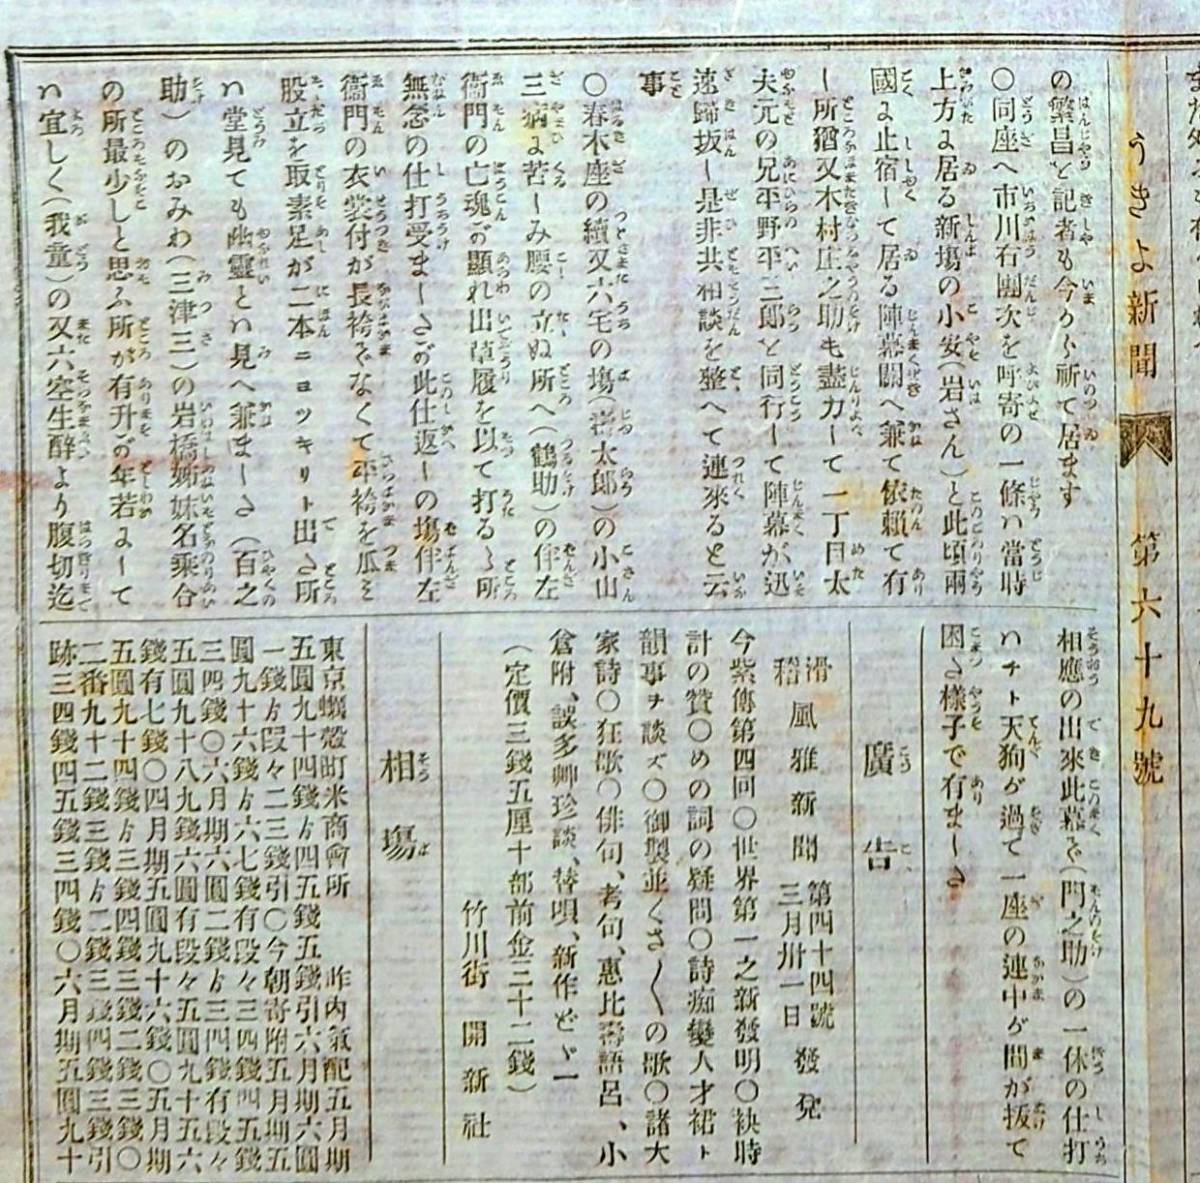 うきよ新聞 第六十九號
の繁昌と記者も今から祈て居ます
○同座へ市川右團次を呼寄の一條ハ當時
上方に居る新塲の小安(岩さん)と此頃兩
國に止宿して居る陣幕關へ兼て依頼て有
し所猶又木村庄之助も盡力して一丁目太
夫元の兄平野平二郎と同行して陣幕が迅
速歸坂し是非共相談を整へて連來ると云
事
○春木座の續又六宅の塲(濱太郎)の小山
三病に苦しみ腰の立ぬ所へ(鶴助)の伴左
衞門の亡魂が顯れ出草履を以て打るゝ所
無念の仕打受ましたが此仕返しの塲伴左
衞門の衣裳付が長袴でなくて平袴を瓜ミ
股立を取素足が二本ニヨツキリト出た所
ハ堂見ても幽靈とハ見へ兼ました(百之
助)のおみわ(三津三)の岩橋姊妹名乘合
の所最少しと思ふ所が有升が年若にして
ハ宜しく(我童)の又六空生醉より腹切迄
相應の出來此幕で(門之助)の一休の仕打
ハチト天狗が過て一座の連中が間が拔て
困た樣子で有ました
廣告
滑稽風雅新聞 第四十四號 三月卅一日 發兌
今紫傳第四回○世界第一之新發明○袂時
計の贊○めの詞の疑問○詩痴變人才裙ト
韻事ヲ談ズ○御製並くさ〲の歌○諸大
家詩○狂歌○俳句、考句、惠比壽語呂、小
倉附、誤多卿珍談、替唄、新作どゞ一
(定價三錢五厘十部前金三十二錢)
竹川街 開新社
相塲
東京蠣殼町米商會所 昨内氣配五月期
五圓九十四錢ゟ四五錢五錢引六月期六圓
一錢ゟ段々二三錢引○今朝寄附五月期五
圓九十六錢ゟ六七錢有段々三四錢四五錢
三四錢○六月期六圓二錢ゟ三四錢有段々
五圓九十八九錢六圓有段々五圓九十五六
錢有七錢○四月期五圓九十六錢○五月期
五圓九十四錢ゟ三錢四錢三錢二錢三錢○
二番九十二錢三錢ゟ二錢三錢四錢三錢引
跡三四錢四五錢三四錢○六月期五圓九十